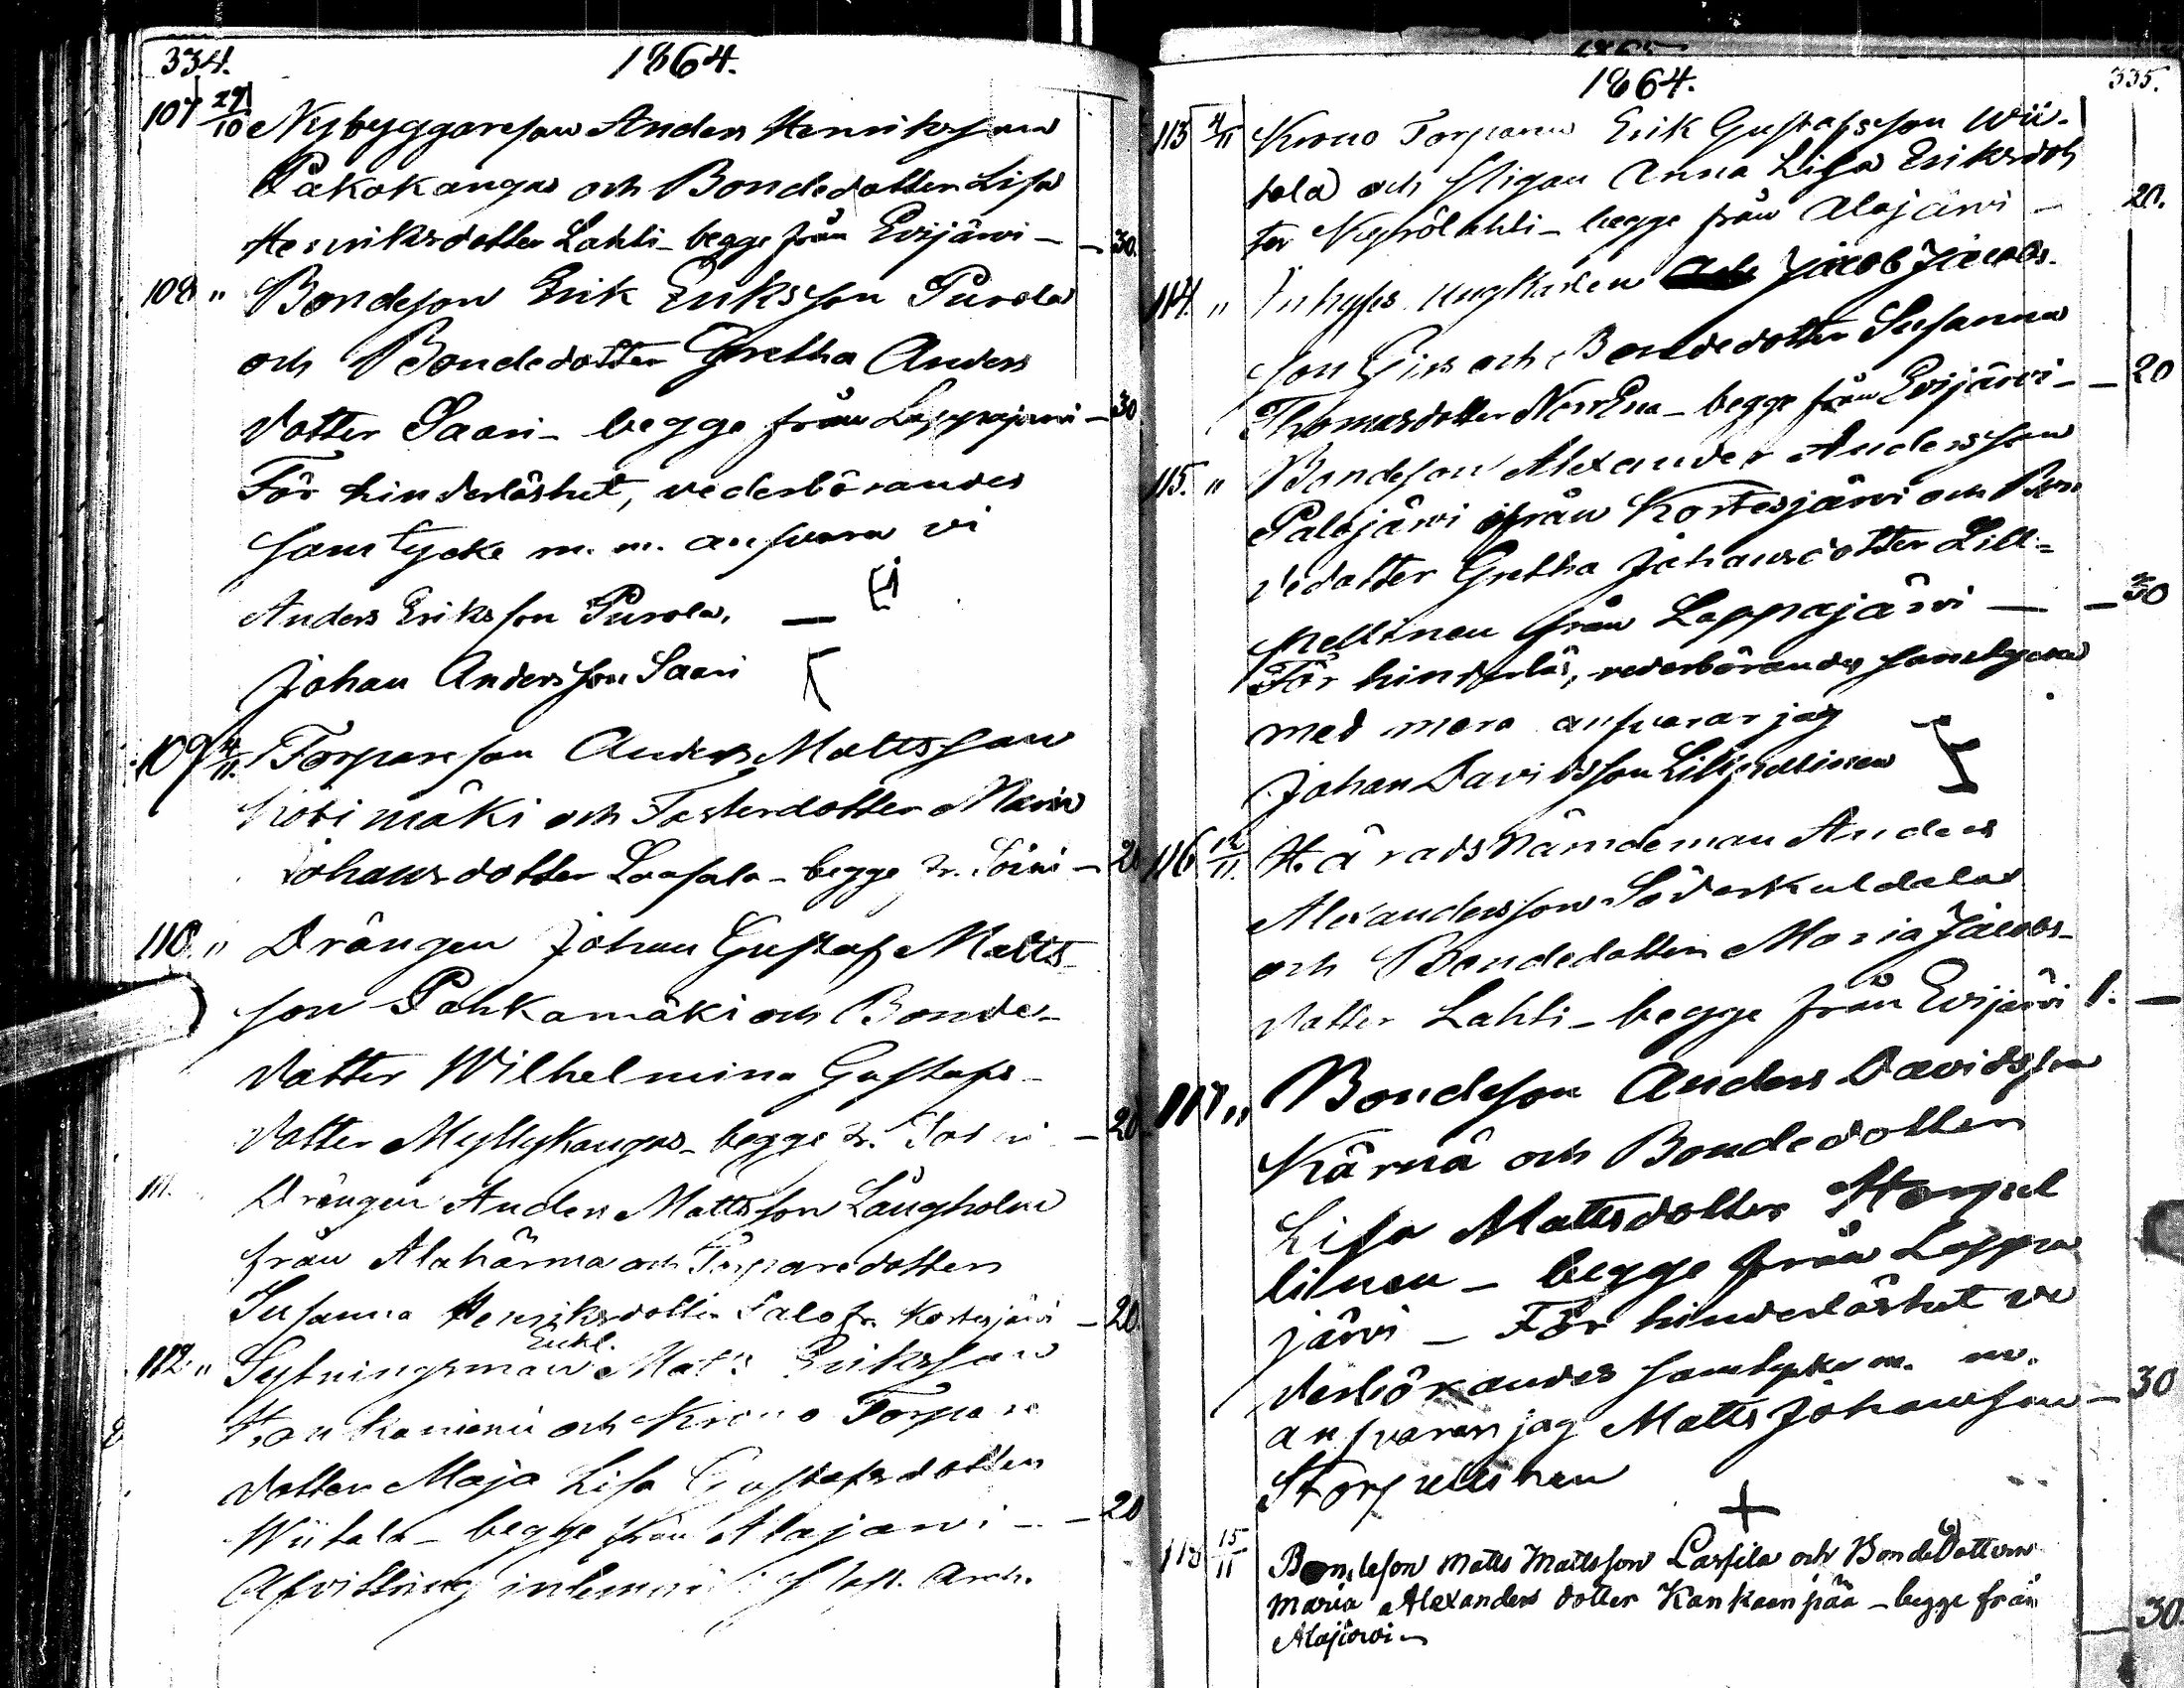 334.
1864.
107 29/10 Nybyggareson Anders Henriksson
Pakokangas och Bondedotter Lisa
Henriksdotter Lahti - begge från Evijärvi - - 30.
108 " Bondeson Erik Eriksson Purola
och Bondedotter Gretha Anders
dotter Saari - begge från Lappajärvi - 30
För hinderlöshet, vederbörandes
samtycke m. m. ansvara vi
Anders Eriksson Purola. —
Johan Andersson Saari
109 4/11. Torpareson Anders Mattsson
Kotimäki och Testerdotter Maria
Johansdotter Laasala - begge fr. Soini - 20
110. " Drängen Johan Gustaf Matts-
son Pahkamäki och Bonde-
dotter Wilhelmina Gustafs-
dotter Myllykangas - begge fr. Soini - 20
111. Drängen Anders Mattsson Långholm
från Alahärmä och Torparedotter
Susanna Henriksdotter Salo fr. Kortesjärvi - 20.
Enkl.
112. " Sytningsman Matts Eriksson
och Krono Torpare
dotter Maja Lisa Gustafsdotter
Wiitala - begge från Alajärvi - - 20
Afvittring
1864.
335.
113 4/11 Krono Torparen Erik Gustafsson Wii-
tala och Pigan Anna Lisa Eriksdot
ter - begge från Alajärvi - 20.
114. " Inhyses Ungkarlen Jacob Jacobs-
son och Bondedotter Susanna
Thomasdotter NorrEna - begge från Evijärvi - - 20
115. " Bondeson Alexander Andersson
Palojärvi ifrån Kortesjärvi och Bon
dedotter Gretha Johansdotter Lill=
pellinen från Lappajärvi — - 30
För hinderlös, vederbörandes samtycke
med mera ansvarar jag
Johan Davidsson Lillpellinen
116 12/11. Häradsnämdeman Anders
Alexandersson Söderkuldala
och Bondedotter Maria Jacobs-
dotter Lahti - begge från Evijärvi 1. —
117 " Bondeson Anders Davidsson
Kärnä och Bondedotter
Lisa Mattsdotter Storpel
linen - begge från Lappa
järvi - För hinderlöshet ve
derbörandes samtycke m. m.
ansvarar jag Matts Johansson - 30
Storpellinen
118 15/11 Bondeson Matts Mattsson Lassila och BondeDottern
Maria Alexanders dotter Kankaanpää - begge från
Alajärvi - — 30.